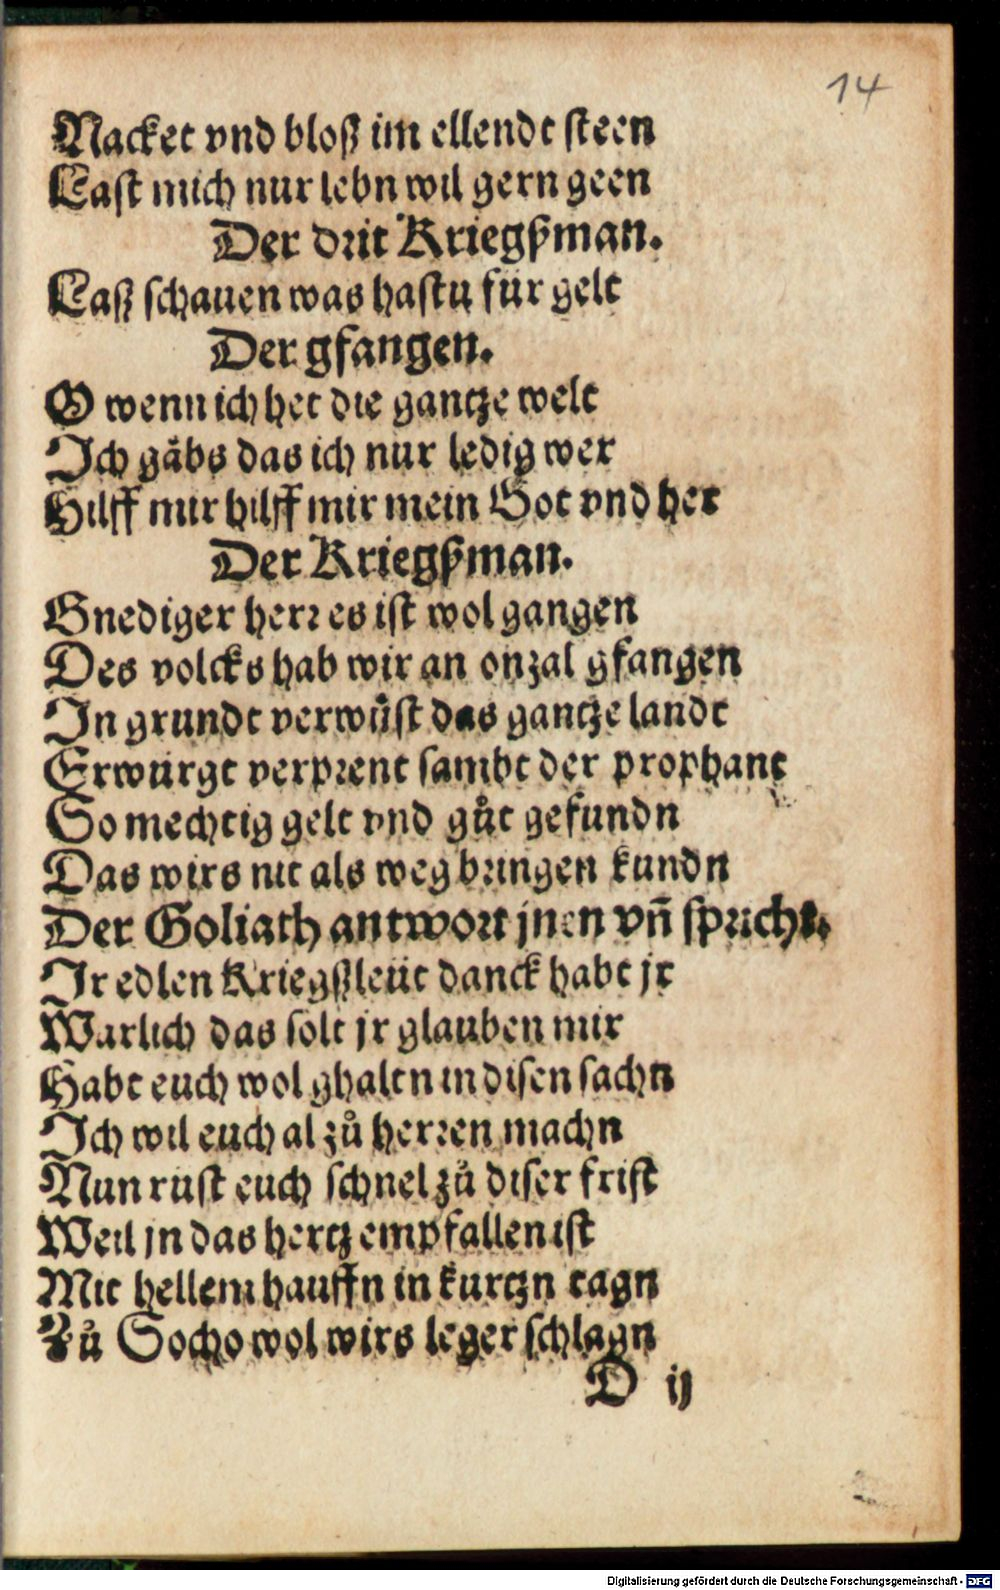 14
Nacket vnd bloß im ellendt steen
Last mich nur lebn wil gern geen
Der drit Kriegßman.
Laß schauen was hastu für gelt
Der gfangen.
O wenn ich het die gantze welt
Ich gäbs das ich nur ledig wer
Hilff mir hilff mir mein Got vnd her
Der Kriegßman.
Gnediger herr es ist wol gangen
Des volcks hab wir an onzal gfangen
In grundt verwüst das gantze landt
Erwürgt verprent sambt der prophant
So mechtig gelt vnd gůt gefundn
Das wirs nit als weg bringen kundn
Der Goliath antwort jnen vñ spricht.
Ir edlen Kriegßleüt danck habt jr
Warlich das solt jr glauben mir
Habt euch wol ghaltn in disen sachn
Ich wil euch al zů herren machn
Nun rust euch schnel zů diser frist
Weil jn das hertz empfallen ist
Mit hellem hauffn in kurtzn tagn
Zů Socho wol wirs leger schlagn
D ij
Digitalisierung gefördert durch die Deutsche Forschungsgemeinschaft - DFG